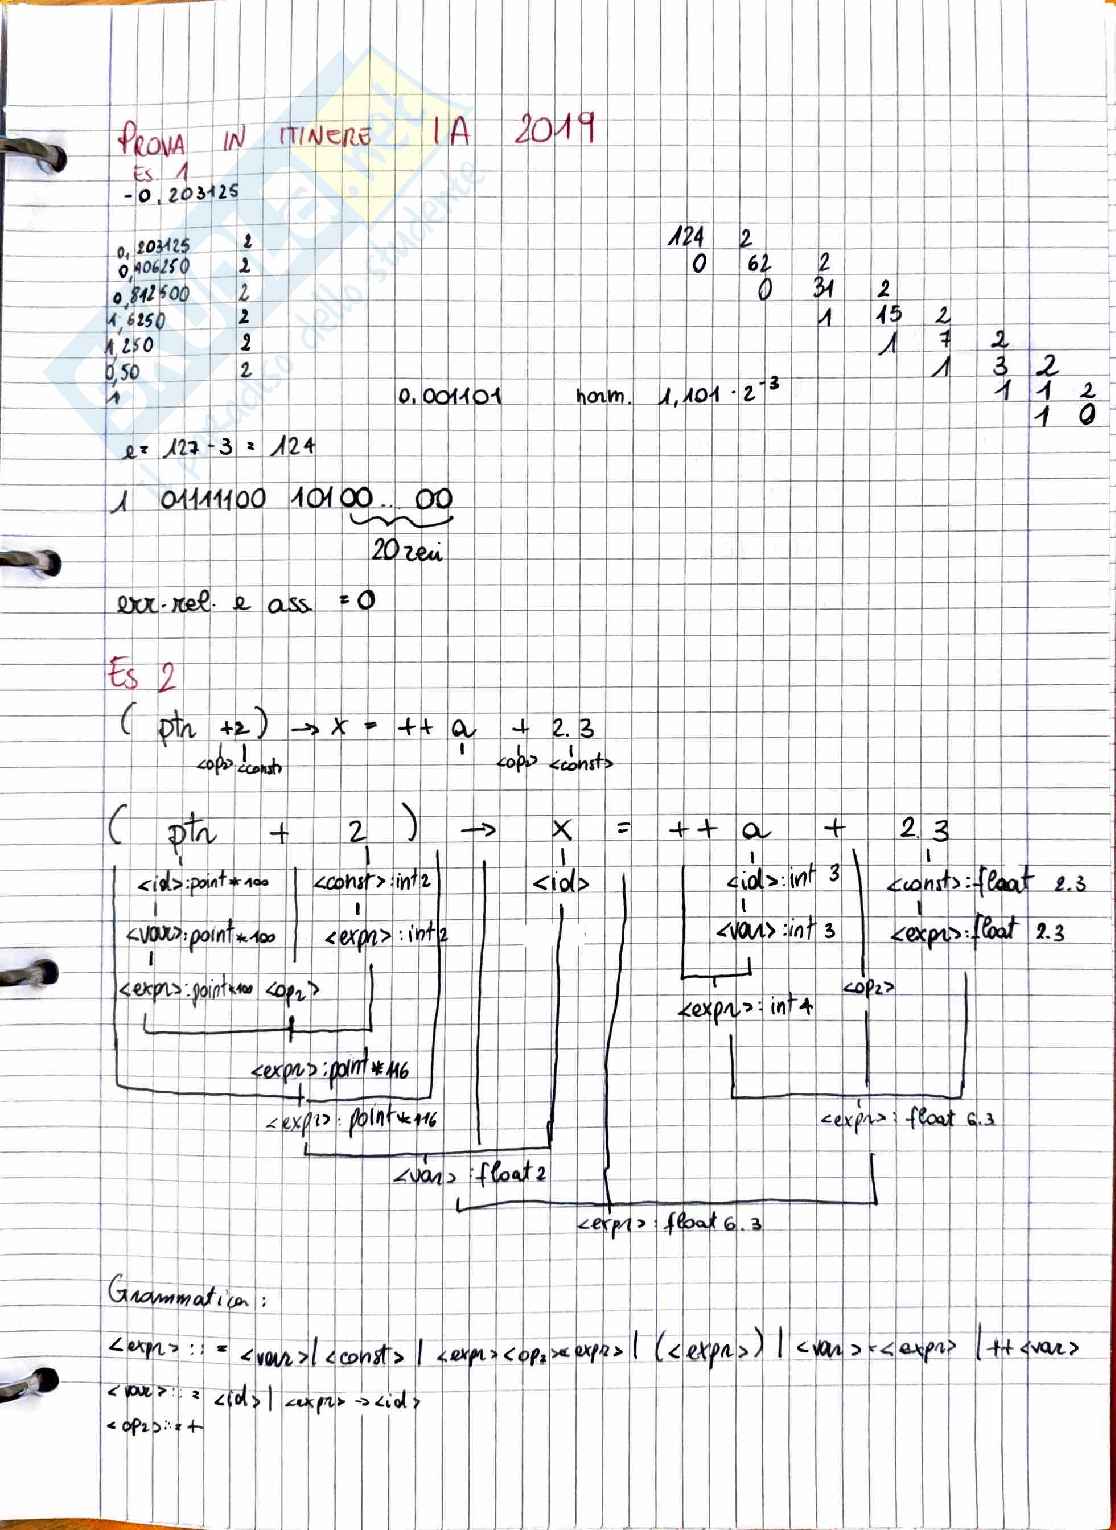 PROVA IN ITINERE IA 2019
Es. 1
-0,203125
0,203125 2
0,406250 2
0,812500 2
1,6250 2
1,250 2
0,50 2
1
0,001101 norm. 1,101 · 2^-3
124 2
0 62 2
0 31 2
1 15 2
1 7 2
1 3 2
1 1 2
1 0
e= 127 - 3 = 124
1 01111100 10100.. 00
20 zeri
err. rel. e ass = 0
Es 2
( ptr +2 ) → x = ++ a + 2.3
<op2> <const> <op2> <const>
( ptr + 2 ) → x = ++ a + 2.3
<id>:point*100 <const>:int2 <id> <id>:int 3 <const>:float 2.3
<var>:point*100 <expr>:int2 <var>:int 3 <expr>:float 2.3
<expr>:point*100 <op2> <expr>:int4 <op2>
<expr>:point*116
<expr>:point*116 <expr>:float 6.3
<var>:float2
<expr>:float 6.3
Grammatica:
<expr>::= <var>|<const>|<expr><op2><expr>|(<expr>)|<var>=<expr>|++<var>
<var>::= <id>|<expr>→<id>
<op2>::=+